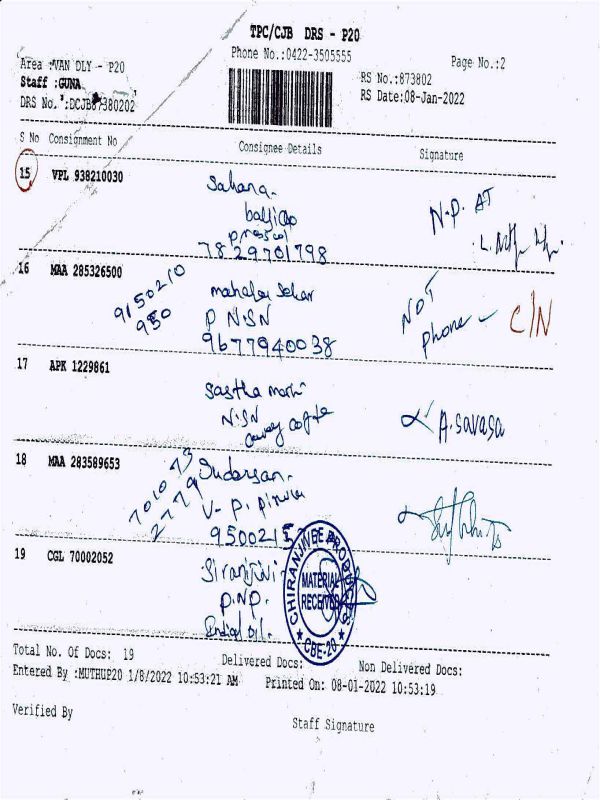 TPC/CJB DRS - P20
Phone No.:0422-3505555
Page No.:2
Area :VAN DLY - P20
Staff :GUNA
RS No.:873802
DRS No. :DCJB87380202
RS Date:08-Jan-2022
S No Consignment No Consignee Details Signature
15 VPL 938210030
Sahana
7829701798
N.P. AT
16 MAA 285326500
9150210
950
P NSN
9677940038
NOT
Phone
C/N
17 APK 1229861
Sastha
N.SN
A. Savasa
18 MAA 283589653
Sudarsan
701073
2779
V- P.
9500215
19 CGL 70002052
P.NP.
CHIRANJIVEE PRODUCTS
MATERIAL
RECEIVED
★ CBE-20 ★
Total No. Of Docs: 19 Delivered Docs: Non Delivered Docs:
Entered By :MUTHUP20 1/8/2022 10:53:21 AM Printed On: 08-01-2022 10:53:19
Verified By
Staff Signature